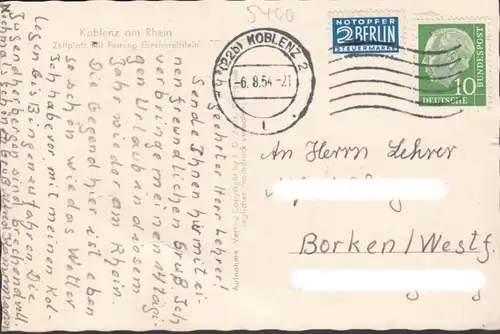 5400
Koblenz am Rhein
Zeltplatz mit Festung Ehrenbreitstein
(22b) KOBLENZ 2
-6.8.54-21
NOTOPFER
2 BERLIN
STEUERMARKE
10
DEUTSCHE
BUNDESPOST
geehrter Herr Lehrer!
Sende Ihnen hiermit ei-
nen freundlichen Gruß. Ich
verbringe meinen 14 tägi-
gen Urlaub in diesem
Jahr wieder am Rhein.
Die Gegend hier ist eben
so schön wie das Wetter.
Ich habe vor mit meinen Kol-
legen bis Bingen zu fahren. Die
Jugendherbergen sind brechend voll.
Nochmals schönen Gruß
An Herrn Lehrer
Borken/Westf.